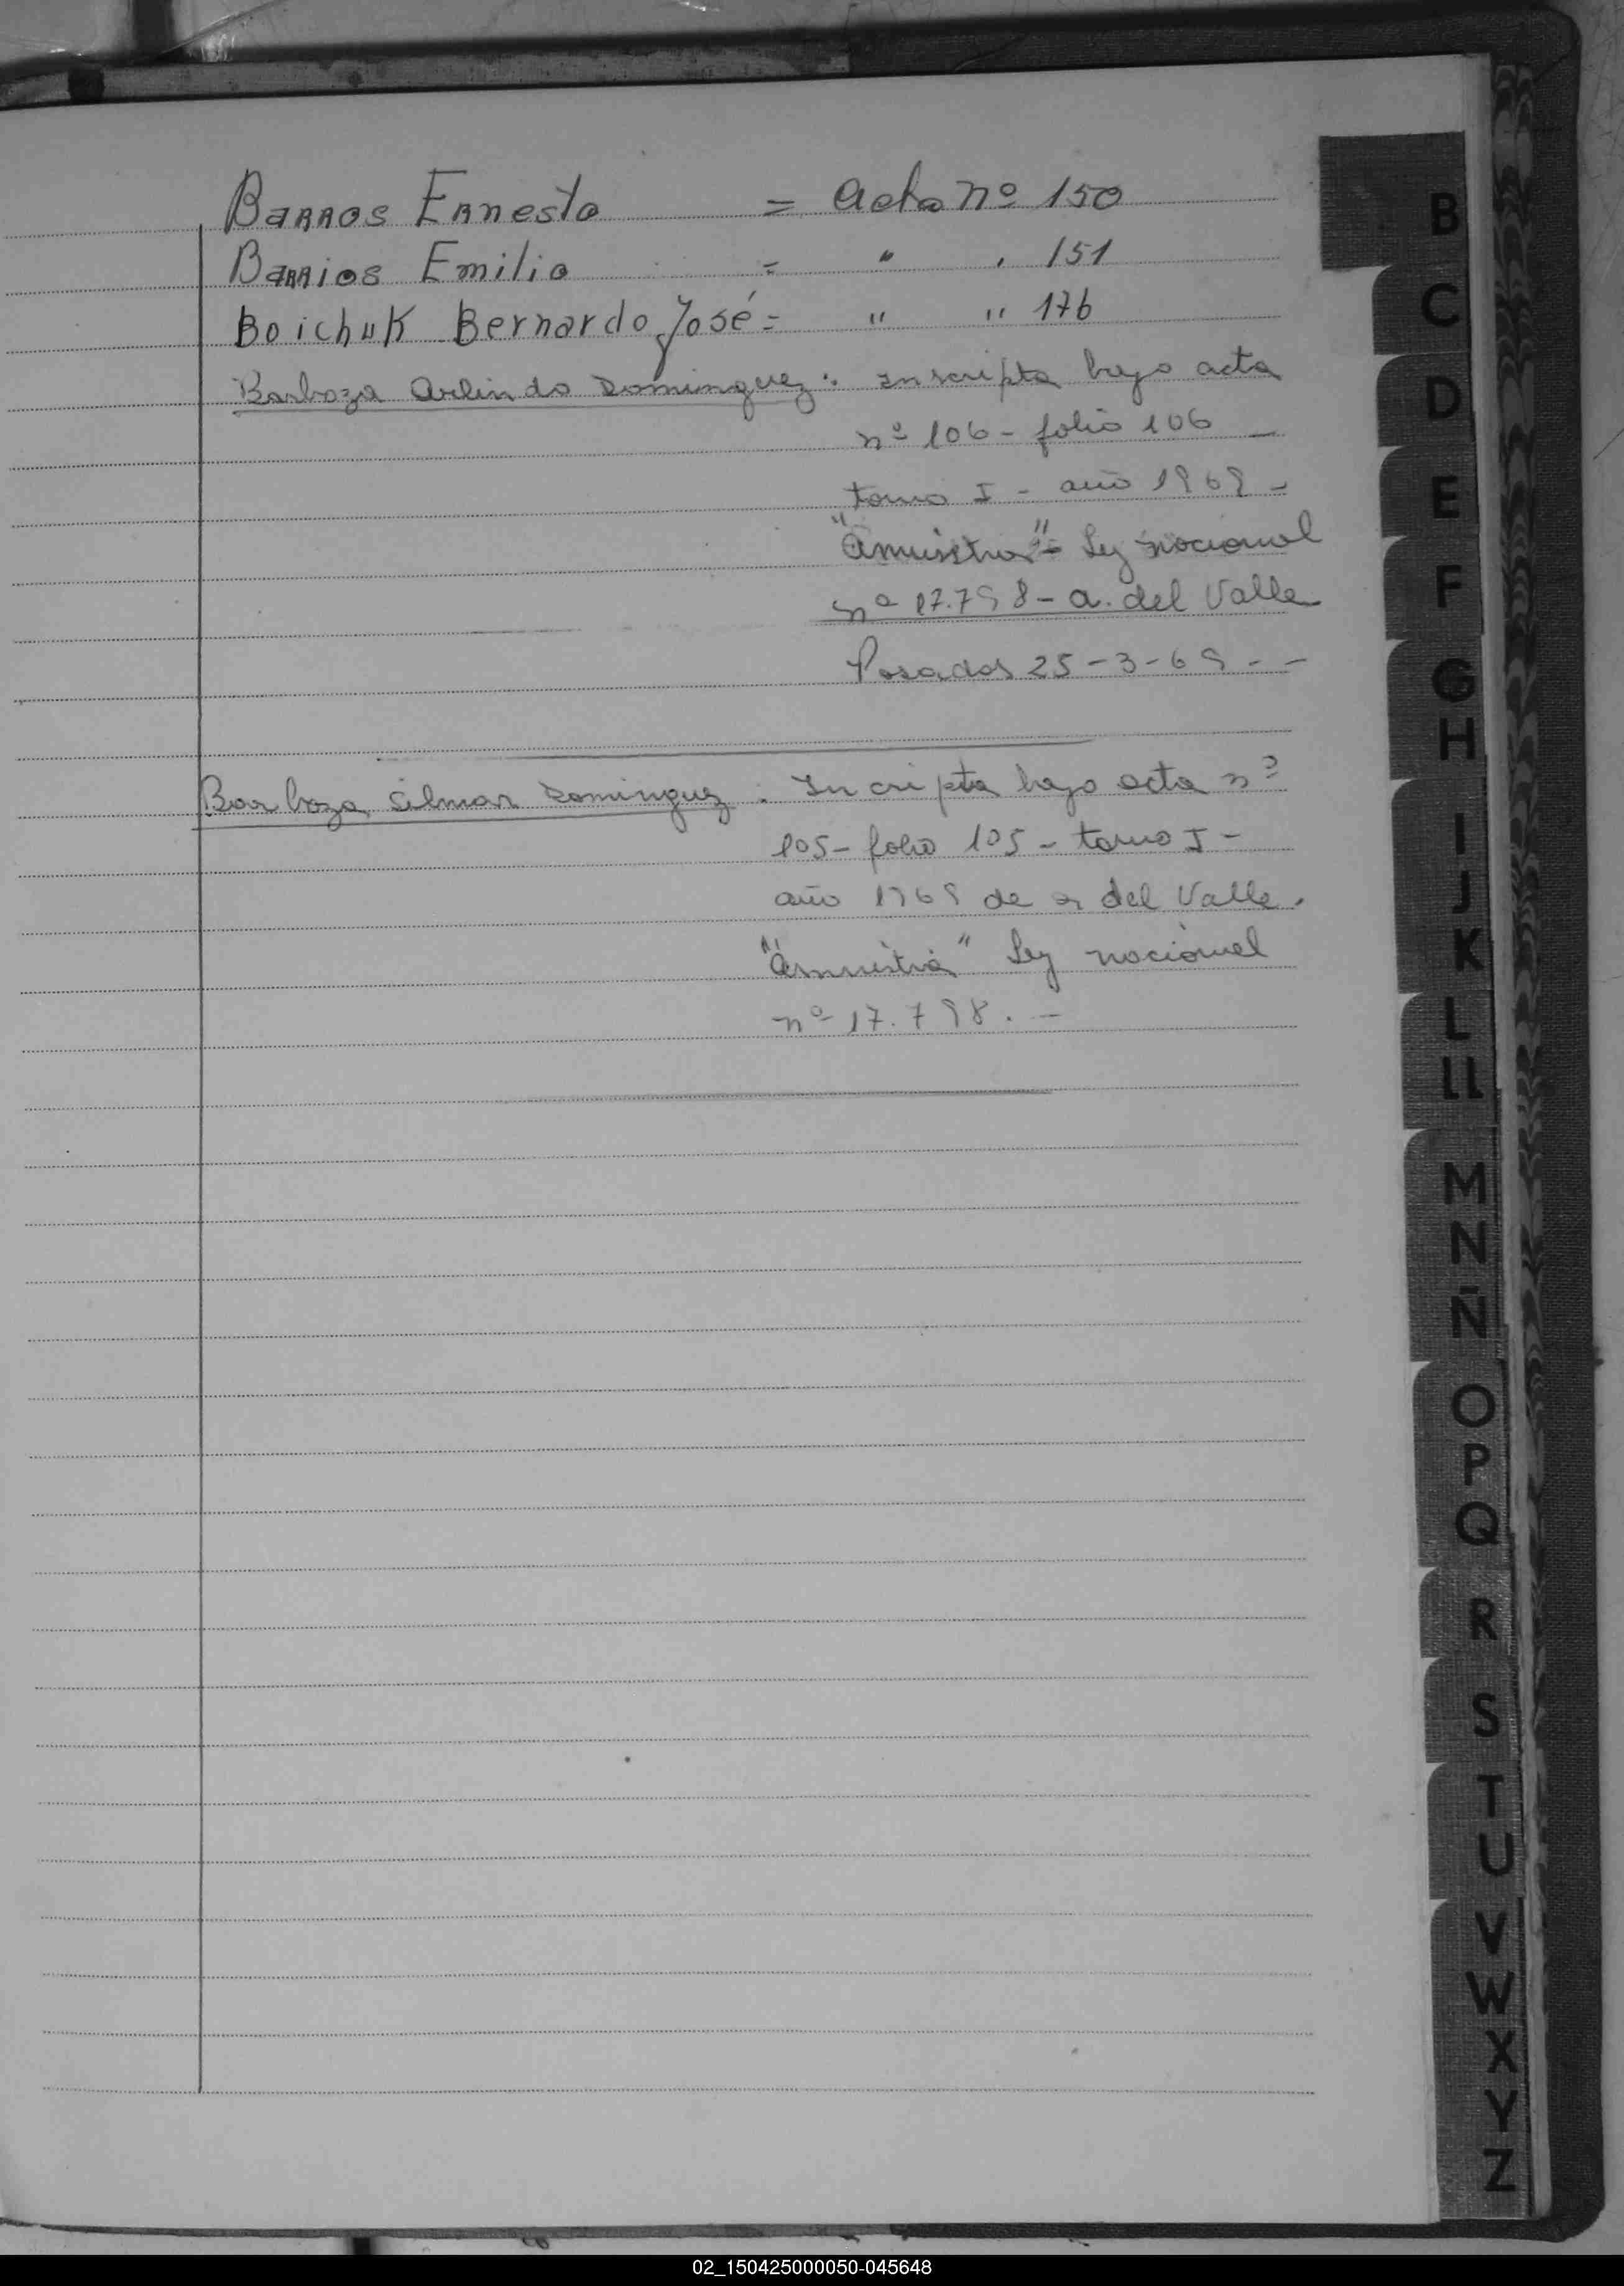 Barros Ernesto = Acta nº 150
Barrios Emilio = " " 151
Boichuk Bernardo José = " " 176
Barboza Arlindo Dominguez: Inscripta bajo acta
nº 106 - folio 106 -
tomo I - año 1969 -
"Amnistia" - Ley nacional
nº 17.798 - a. del Valle
Posadas 25-3-69 - -
Barboza Silmar Dominguez: Incripta bajo acta nº
105 - folio 105 - tomo I -
año 1969 de a del Valle.
"Amnistia" Ley nacional
nº 17.798. -
B
C
D
E
F
G
H
I
J
K
L
LL
M
N
Ñ
O
P
Q
R
S
T
U
V
W
X
Y
Z
02_150425000050-045648